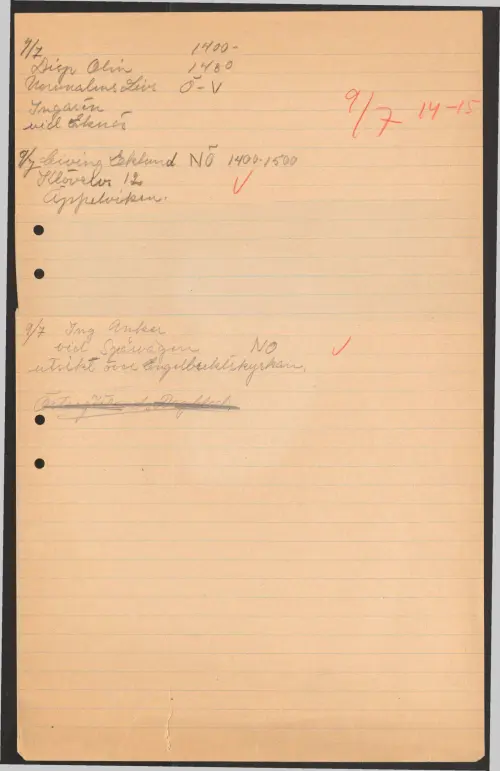 9/7 1400-
Disp Olin 1430
Normalms Livs Ö-V
Ingarön
vid Eknäs
9/7 14-15
9/7 Civing Eklund NÖ 1400-1500
Klövelv 12
Äppelviken.
9/7 Ing Anker
vid Spårvägen NO
utsikt över Engelbrektskyrkan.